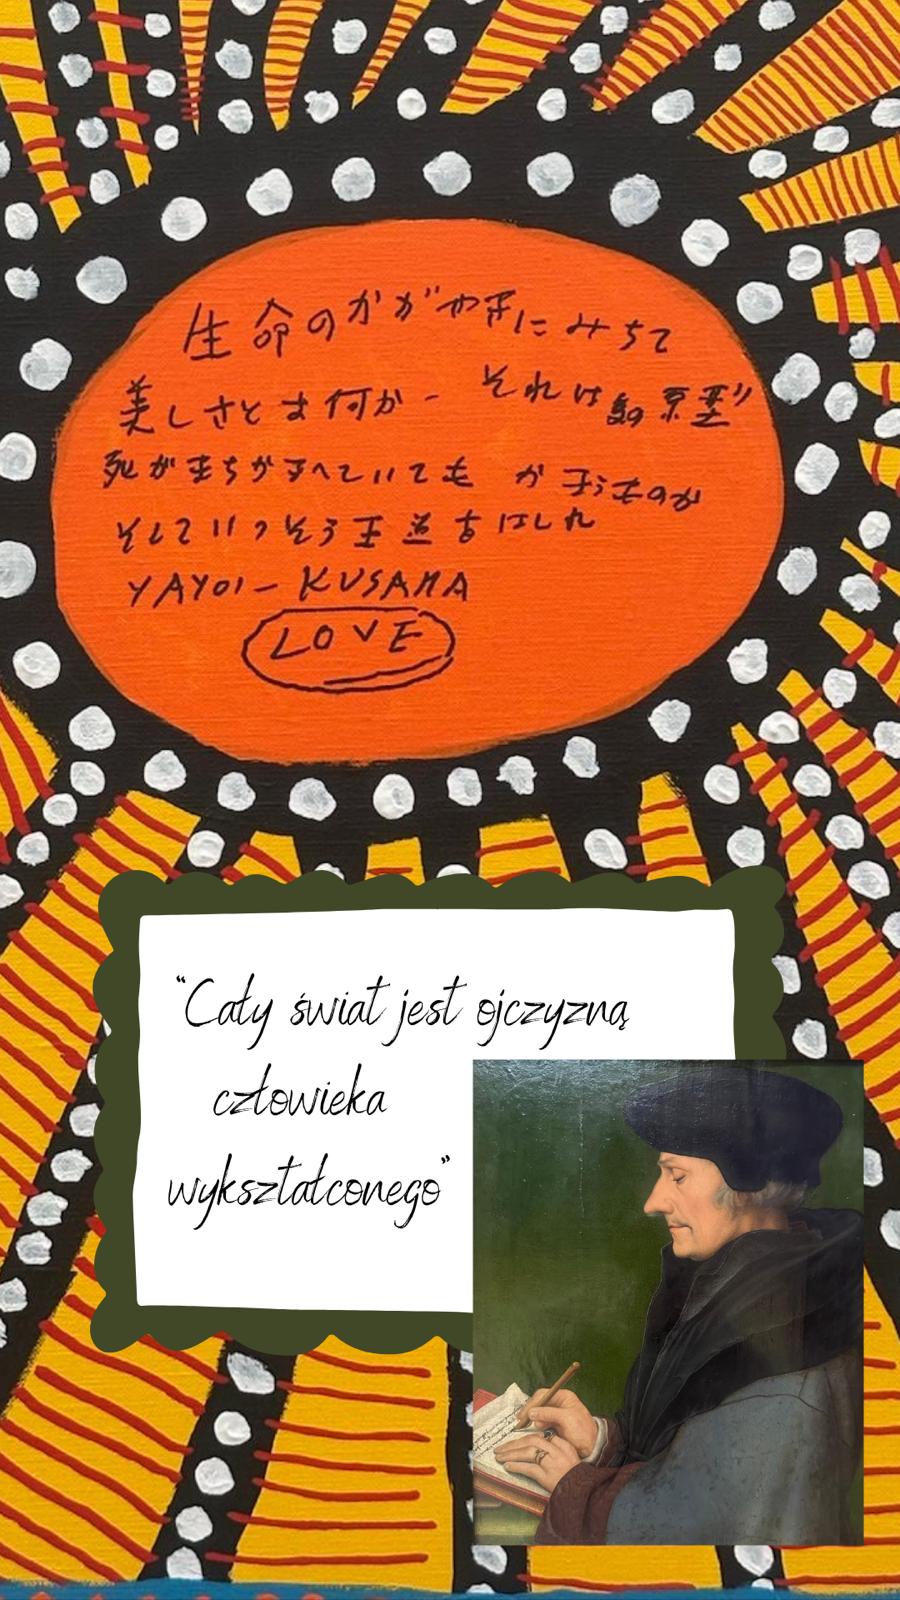 生命のかがやきにみちて
美しさとは何か- それは
死がまちかまへていても か まうものか
そしていっそう王道をはしれ
YAYOI-KUSAMA
LOVE
“Cały świat jest ojczyzną
człowieka
wykształconego”